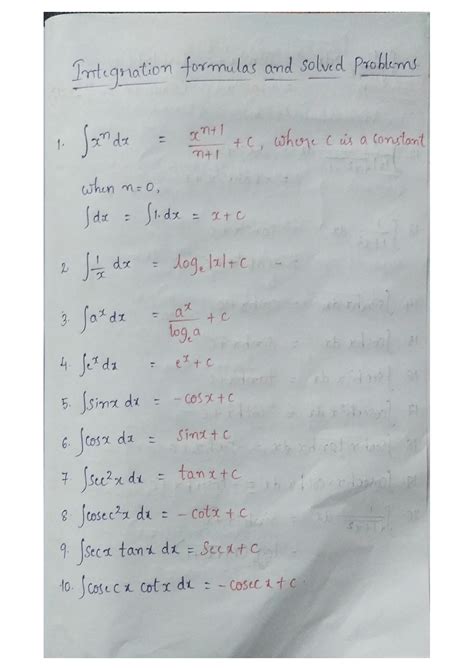 Integration formulas and solved Problems
1. ∫xⁿdx = xⁿ⁺¹/n+1 + c, where c is a constant
when n=0,
∫dx = ∫1.dx = x+c
2. ∫1/x dx = logₑ|x|+c
3. ∫aˣdx = aˣ/logₑa + c
4. ∫eˣdx = eˣ+c
5. ∫sinx dx = -cosx+c
6. ∫cosx dx = sinx+c
7. ∫sec²x dx = tanx+c
8. ∫cosec²x dx = -cotx+c
9. ∫secx tanx dx = secx+c
10. ∫cosecx cotx dx = -cosecx+c